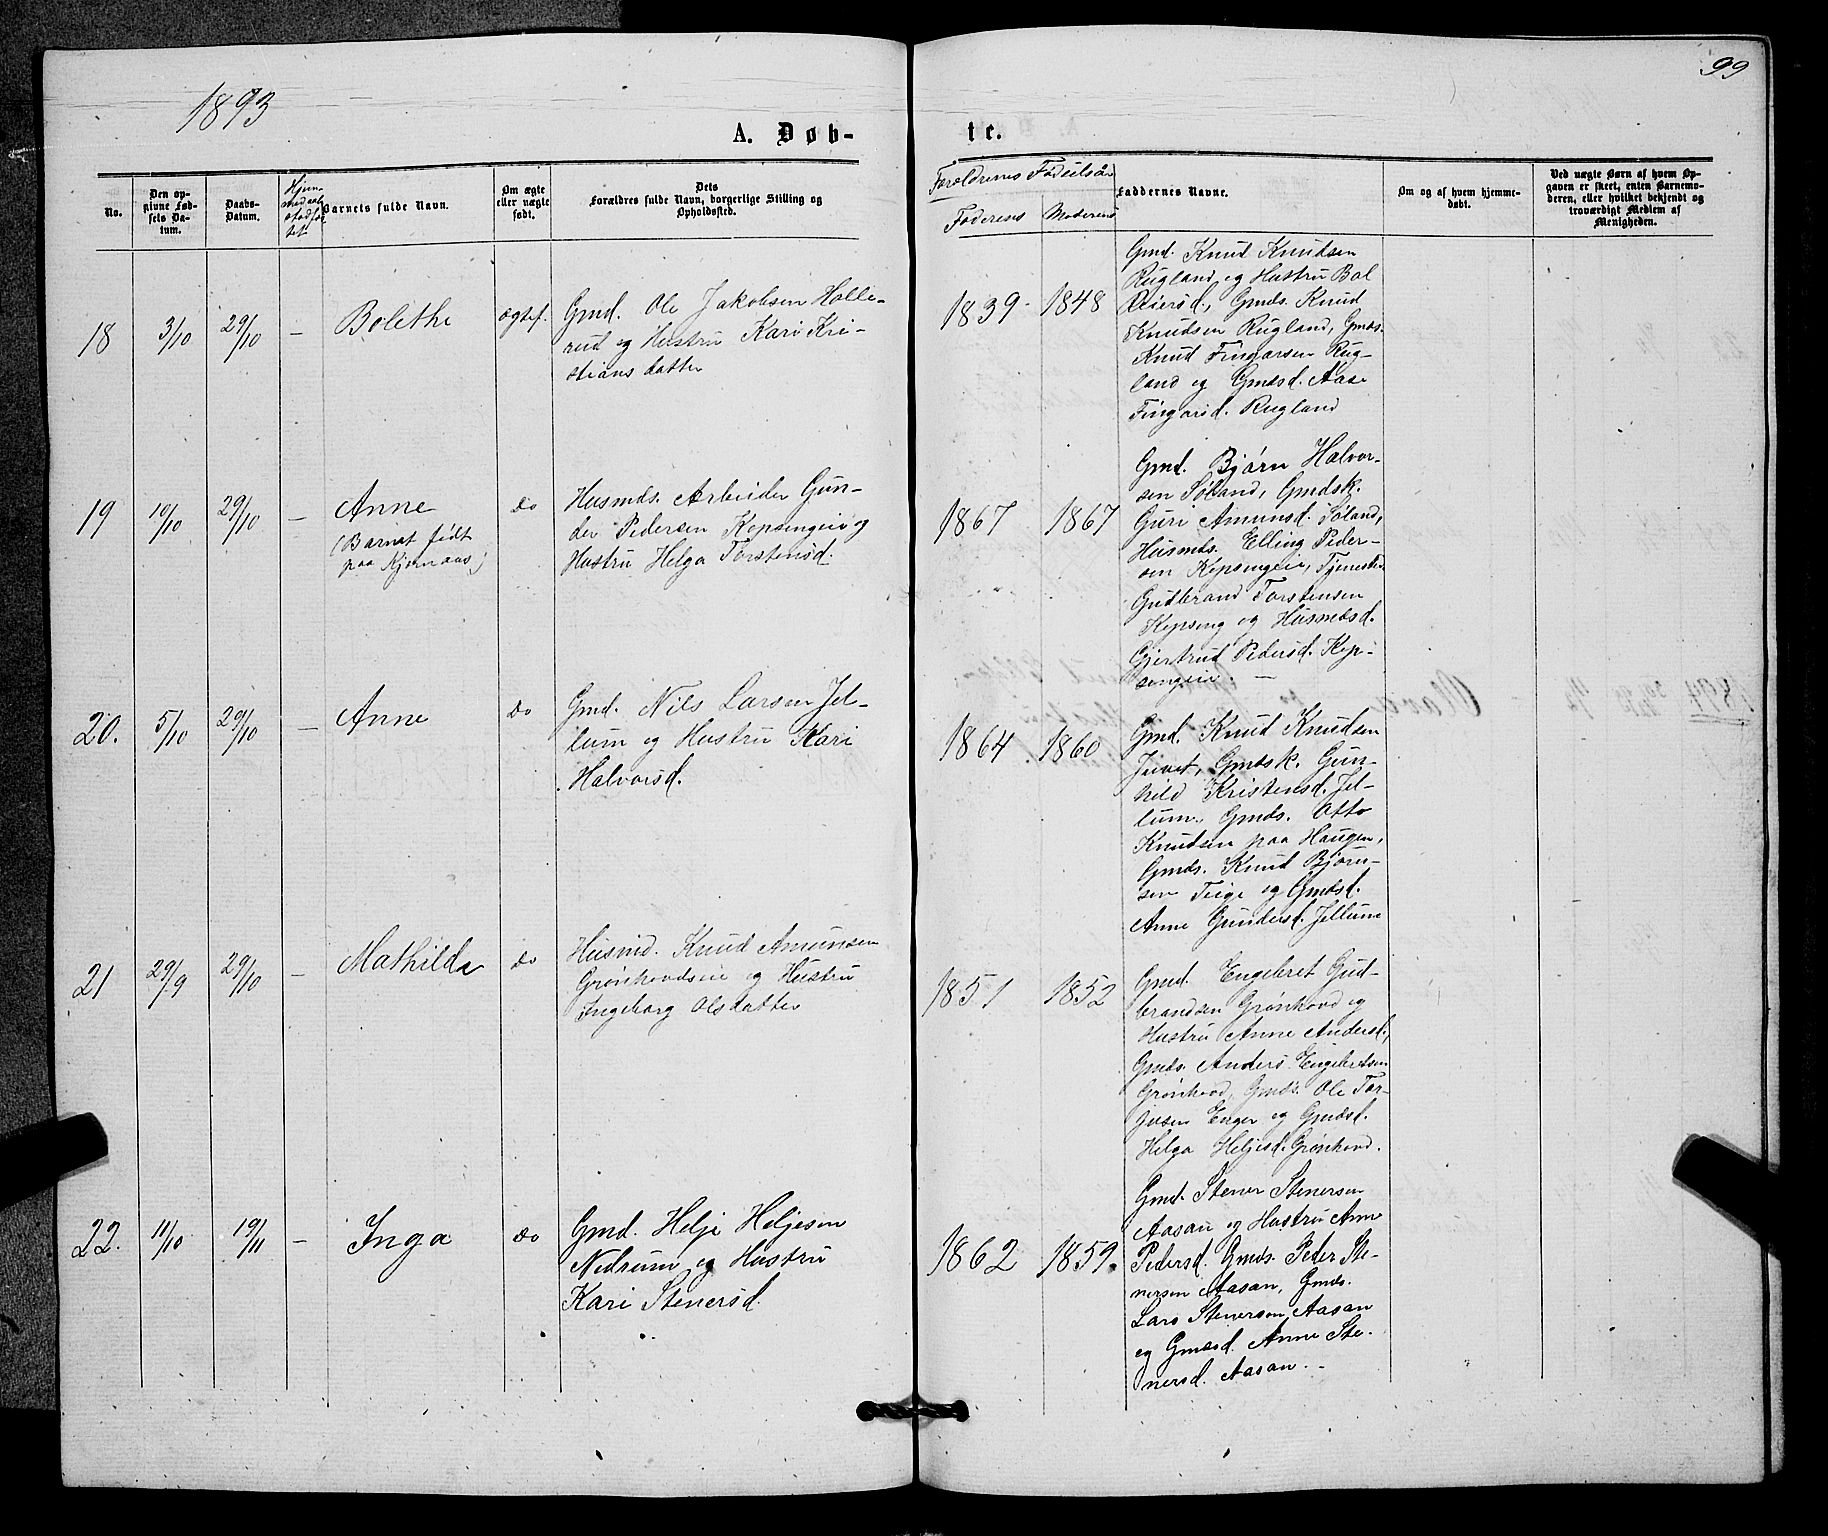 99
1893
A. Døb-
te.
No.
Den op-
givne Fød-
sels Da-
tum.
Daabs-
Datum.
Hjem-
Barnets fulde Navn.
Om ægte
eller uægte
født.
Dets
Forældres fulde Navn, borgerlige Stilling og
Opholdssted.
Forældrenes Fødselsår
Faderens
Moderens
Faddernes Navne.
Om og af hvem hjemme-
døbt.
Ved uægte Børn af hvem Op-
gaven er skeet, enten Barnemo-
deren, eller hvilket bekjendt og
troværdigt Medlem af
Menigheden.
18
3/10
29/10
—
Bolethe
ægtef.
Gmd. Ole Jakobsen Holle-
rud og Hustru Kari Kri-
stiansdatter
1839
1848
Gmd. Knud Knudsen
Rugland og Hustru Bol
Reiersd., Gmds. Knud
Knudsen Rugland, Gmds.
Knud Fingarsen Rug-
land og Gmdsd. Aase
Fingarsd. Rugland
19
10/10
29/10
—
Anne
(Barnet født
paa Kjernaas)
do
Husmds. Arbeider Gun-
der Pedersen Kepsengeie og
Hustru Helga Torstensd.
1867
1867
Gmd. Bjørn Halvor-
sen Søland, Gmdsk.
Guri Amunsd. Søland,
Husmds. Elling Peder-
sen Kepsengeie, Tjenestk.
Gudbrand Torstensen
Kepseng og Husmdsd.
Gjertrud Pedersd. Kep-
sengeie. —
20.
5/10
29/10
—
Anne
do
Gmd. Nils Larsen Jel-
lum og Hustru Kari
Halvorsd.
1864
1860
Gmd. Knud Knudsen
Juvet, Gmdsk. Gun-
hild Kristensd. Jel-
lum, Gmds. Otto
Knudsen paa Haugen,
Gmds. Knud Bjørn-
sen Teige og Gmdsd.
Anne Gundersd. Jellum
21
29/9
29/10
—
Mathilde
do
Husmd. Knud Amunsen
Grønhovdseie og Hustru
Ingeborg Olsdatter
1851
1852
Gmd. Engebret Gud-
brandsen Grønhovd og
Hustru Anne Andersd.,
Gmds. Anders Engebretsen
Grønhovd, Gmds. Ole Tor-
jusen Enger og Gmdsd.
Helga Heljesd. Grønhovd.
22.
11/10
19/11
—
Inga
do
Gmd. Helje Heljesen
Nedrum og Hustru
Kari Stenersd.
1862
1859.
Gmd. Stener Stenersen
Aasan og Hustru Anne
Pedersd. Gmds. Peder Ste-
nersen Aasan, Gmds.
Lars Stenersen Aasan
og Gmdsd. Anne Ste-
nersd. Aasan. —